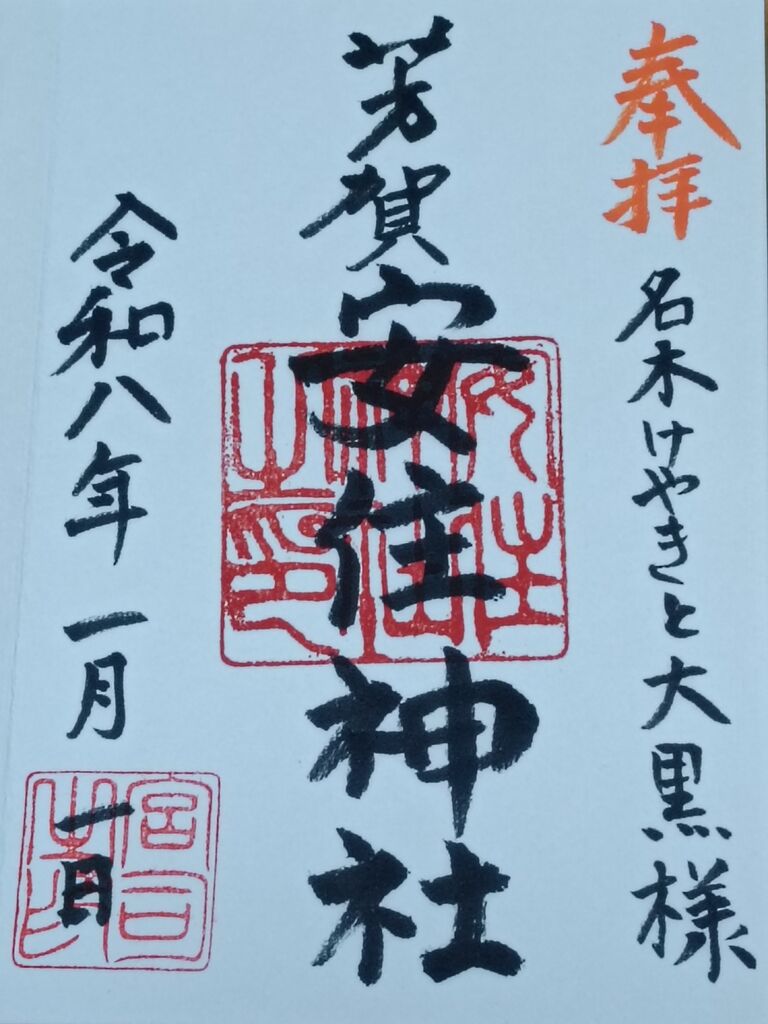 奉拝
名木けやきと大黒様
芳賀安住神社
安住神社之印
令和八年一月一日
宮司之印